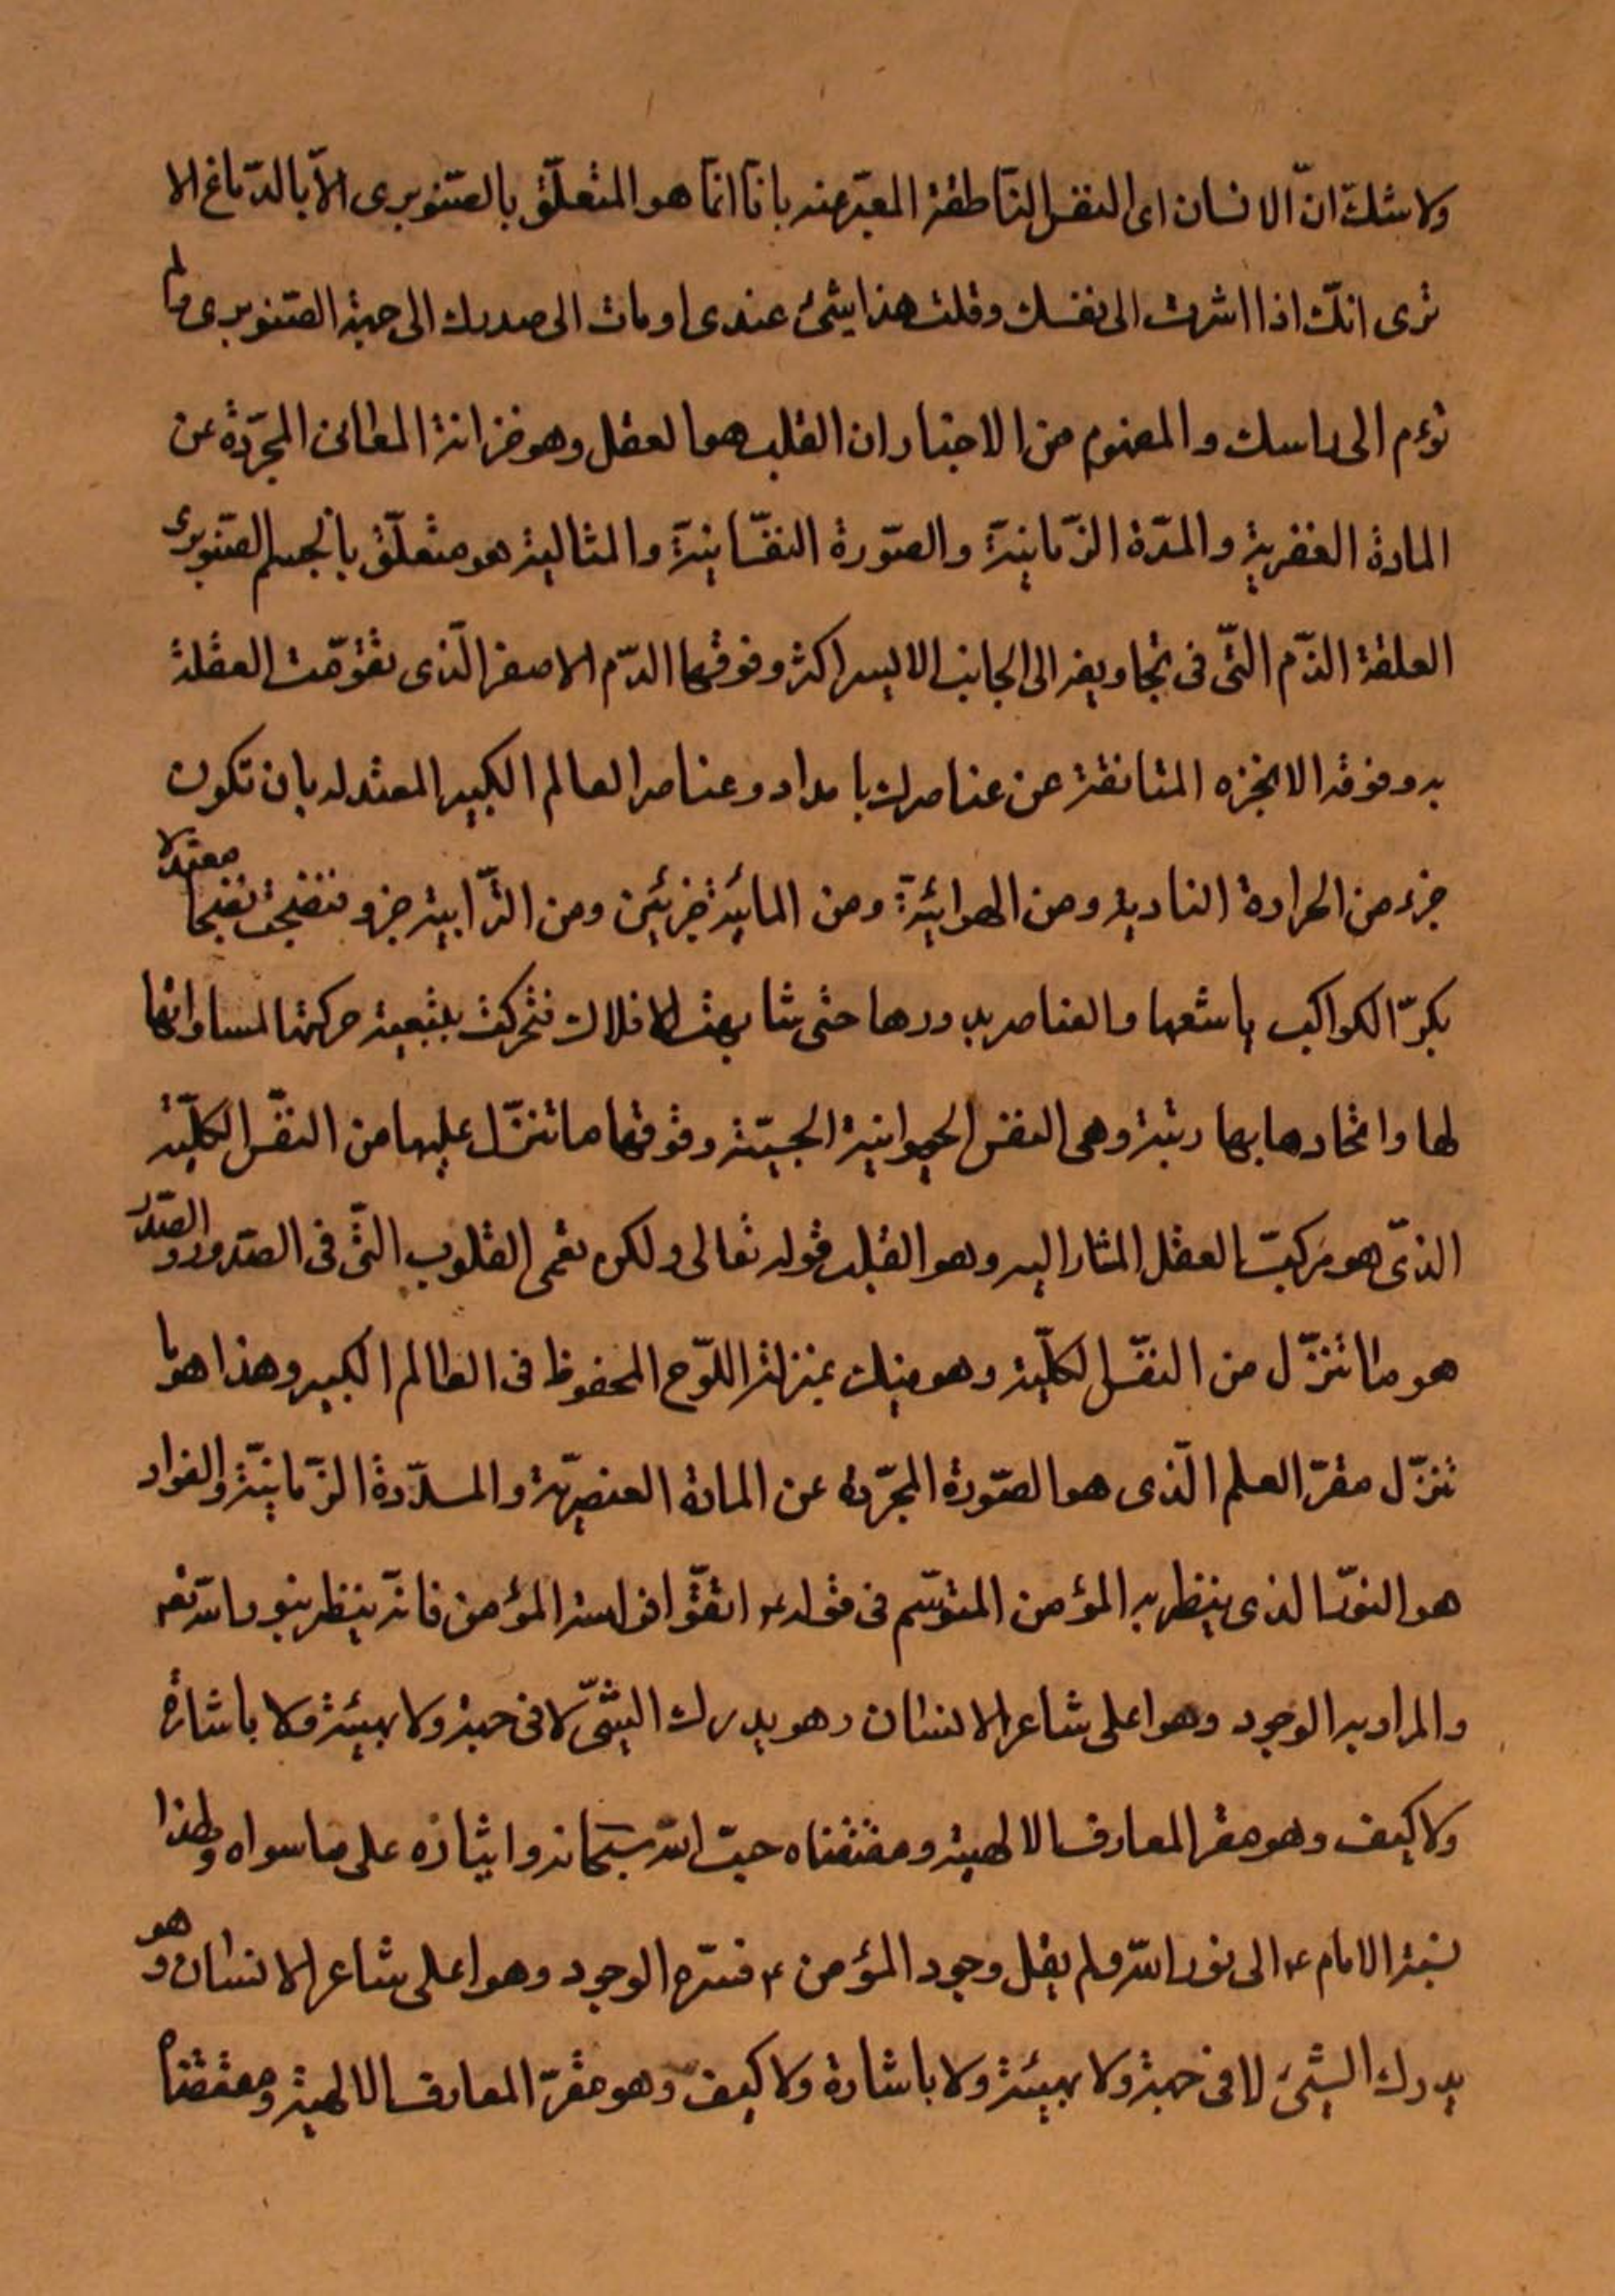 ولا شك انّ الانسان اى النفس النّاطقة المعبّر عنه بانا انّما هو المتعلّق بالصّنوبرى الاّ بالدّماغ الا
ترى انّك اذا اشرت الى نفسك وقلت هذا شئ عندى اومات الى صدرك الى جهة الصّنوبرى ولم
تؤم الى راسك والمفهوم من الاخبار ان القلب هو العقل وهو خزانة المعانى المجرّدة عن
المادة العنصرية والمدّة الزّمانيّة والصّورة النفسّانيّة والمثالية هو متعلّق بالجسم الصّنوبرى
العلقة الدّم التّى فى تجاويفه الى الجانب الايسر اكثر وفوقها الدّم الاصفر الّذى تقوّمت العقلة
به وفوقه الابخره المتانقة عن عناصرك بامداد وعناصر العالم الكبير المعتدله بان تكون
جزء من الحرارة النارية ومن الهوائيّة ومن المائيّة جزئين ومن التّرابية جزو فنضجت نضجا معتدلا
بكرّ الكواكب باشعها والعناصر بدورها حتى شابهت الافلاك فتحركت بتبعية حركتها لمساواتها
لها واتحادها بها رتبة وهى النفس الحيوانية الحسيّة وفوقها ما تنزّل عليها من النفّس الكلّية
الذّى هو مركب العقل المشار اليه وهو القلب قوله تعالى ولكن تعمى القلوب التّى فى الصّدور والصّدر
هو ما تنزّل من النفّس الكلّية وهو منك بمنزلة اللوّح المحفوظ فى العالم الكبير وهذا هو ما
تنزّل مقرّ العلم الّذى هو الصّورة المجرّدة عن المادة العنصريّة والمدّة الزّمانيّة والفواد
هو النورّ الذى ينظر به المؤمن المتوسّم فى قوله ع اتقّوا فراسة المؤمن فانّه ينظر بنور اللّه تعم
والمراد به الوجود وهو اعلى مشاعر الانسان وهو يدرك الشّئ لا فى جهة ولا بهيئة ولا باشارة
ولا كيف وهو مقر المعارف الالهية ومقتضاه حبّ اللّه سبحانه وايثاره على ما سواه ولهذا
نسبة الامام ع الى نور اللّه ولم يقل وجود المؤمن ع فسّره الوجود وهو اعلى مشاعر الانسان وهو
يدرك الشئ لا فى جهة ولا بهيئة ولا باشارة ولا كيف وهو مقرّ المعارف الالهية ومقتضاه